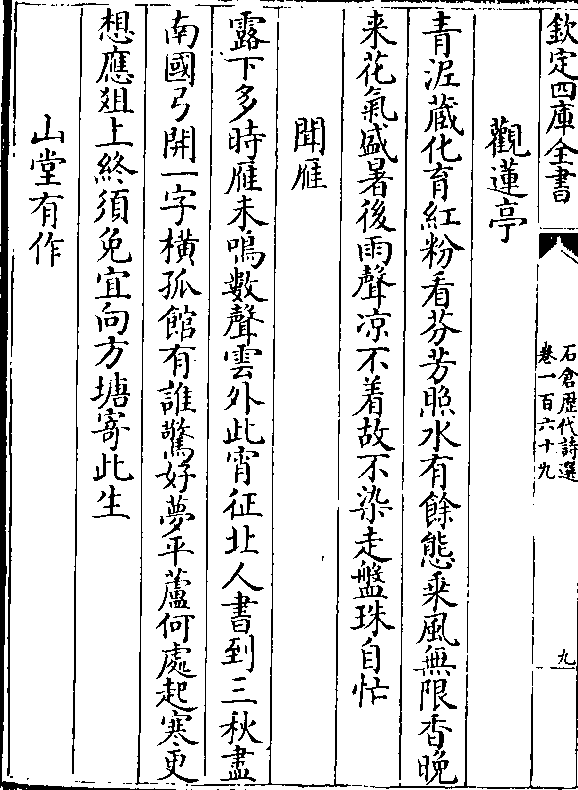 欽定四庫全書
石倉歷代詩選
卷一百六十九
九
觀蓮亭
青泥藏化育紅粉看芬芳照水有餘態乗風無限香晚
来花氣盛暑後雨聲凉不着故不染走盤珠自忙
聞雁
露下多時雁未鳴數聲雲外此宵征北人書到三秋盡
南國弓開一字橫孤館有誰驚好夢平蘆何處起寒更
想應爼上終須免宜向方塘寄此生
山堂有作